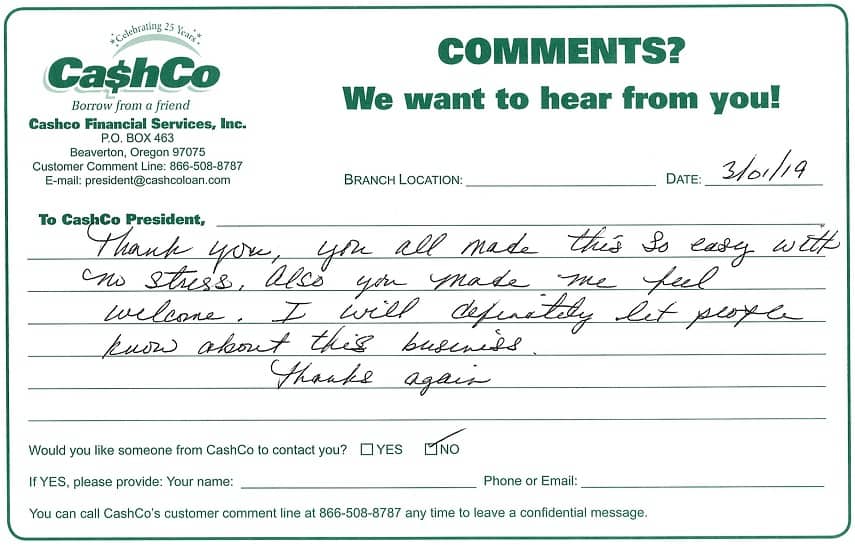 Celebrating 25 Years
Ca$hCo
Borrow from a friend
Cashco Financial Services, Inc.
P.O. BOX 463
Beaverton, Oregon 97075
Customer Comment Line: 866-508-8787
E-mail: president@cashcoloan.com
COMMENTS?
We want to hear from you!
BRANCH LOCATION: DATE: 3/01/19
To CashCo President,
Thank you, you all made this so easy with
no stress. Also you made me feel
welcome. I will definitely let people
know about this business.
Thanks again
Would you like someone from CashCo to contact you? YES NO
If YES, please provide: Your name: Phone or Email:
You can call CashCo's customer comment line at 866-508-8787 any time to leave a confidential message.